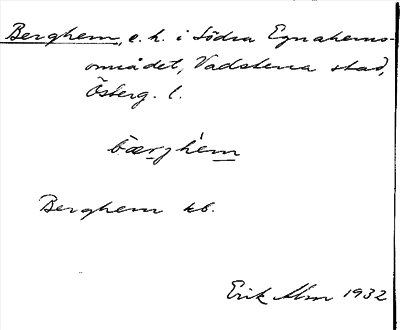 Berghem, e. h. i Södra Egnahems-
området, Vadstena stad,
Österg. l.
bærjhem
Berghem kb.
Erik Alm 1932